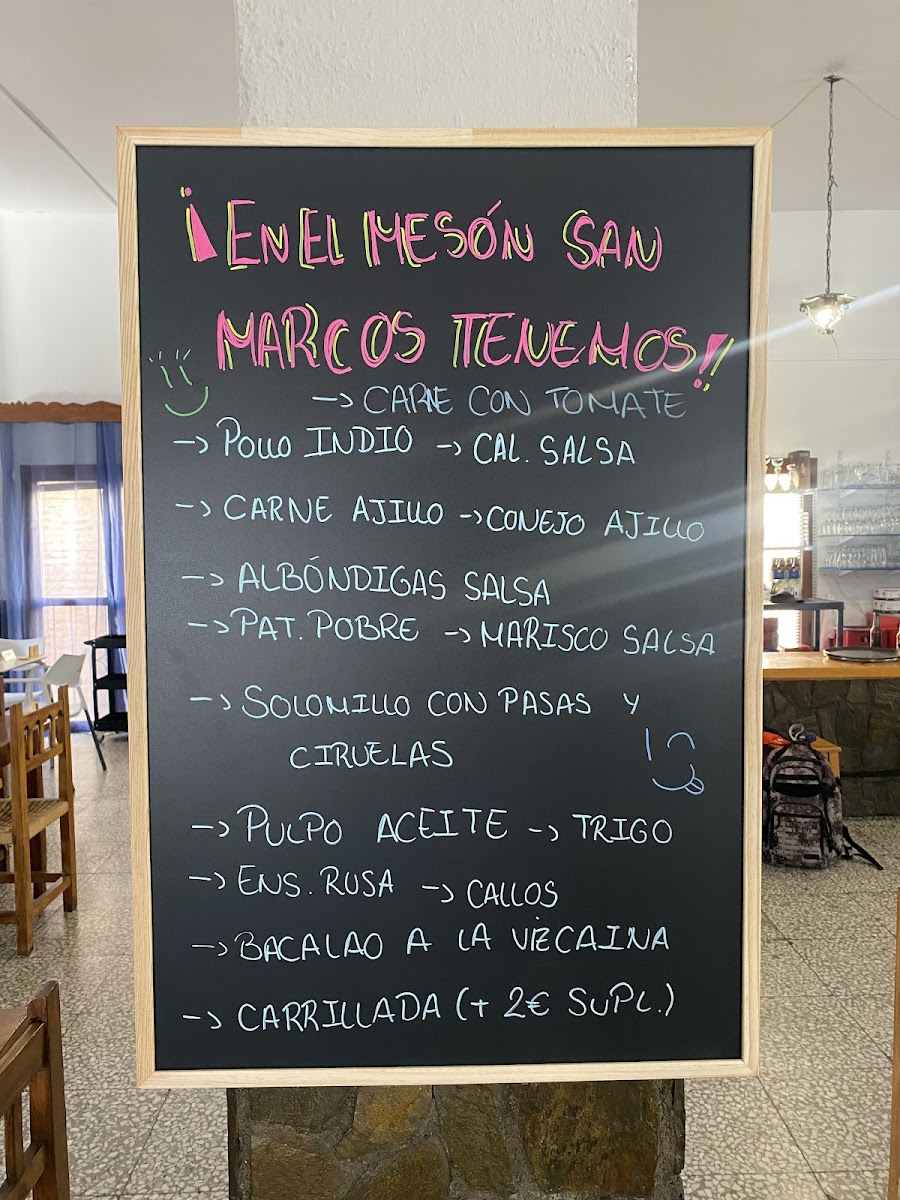 ¡EN EL MESÓN SAN
MARCOS TENEMOS!!
-> CARNE CON TOMATE
-> POLLO INDIO -> CAL. SALSA
-> CARNE AJILLO -> CONEJO AJILLO
-> ALBÓNDIGAS SALSA
-> PAT. POBRE -> MARISCO SALSA
-> SOLOMILLO CON PASAS Y
CIRUELAS
-> PULPO ACEITE -> TRIGO
-> ENS. RUSA -> CALLOS
-> BACALAO A LA VIZCAINA
-> CARRILLADA (+ 2€ SUPL.)